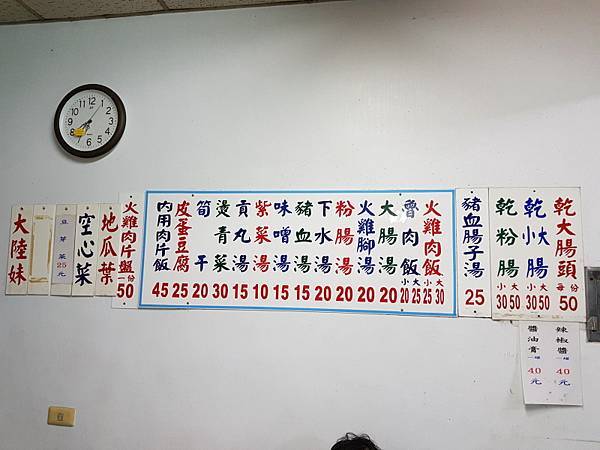 乾大腸頭 每份 50
乾小腸 大小 30 50
乾粉腸 大小 30 50
豬血腸子湯 25
火雞肉飯 大30 小25
魯肉飯 大25 小20
大腸湯 20
火雞腳湯 20
粉腸湯 20
下水湯 20
豬血湯 15
味噌湯 15
紫菜湯 10
貢丸湯 15
燙青菜 30
筍干 20
皮蛋豆腐 25
內用肉片飯 45
火雞肉片盤 一份 50
地瓜葉
空心菜
豆芽菜 25元
大陸妹
辣椒醬 一罐 40元
醬油膏 一罐 40元